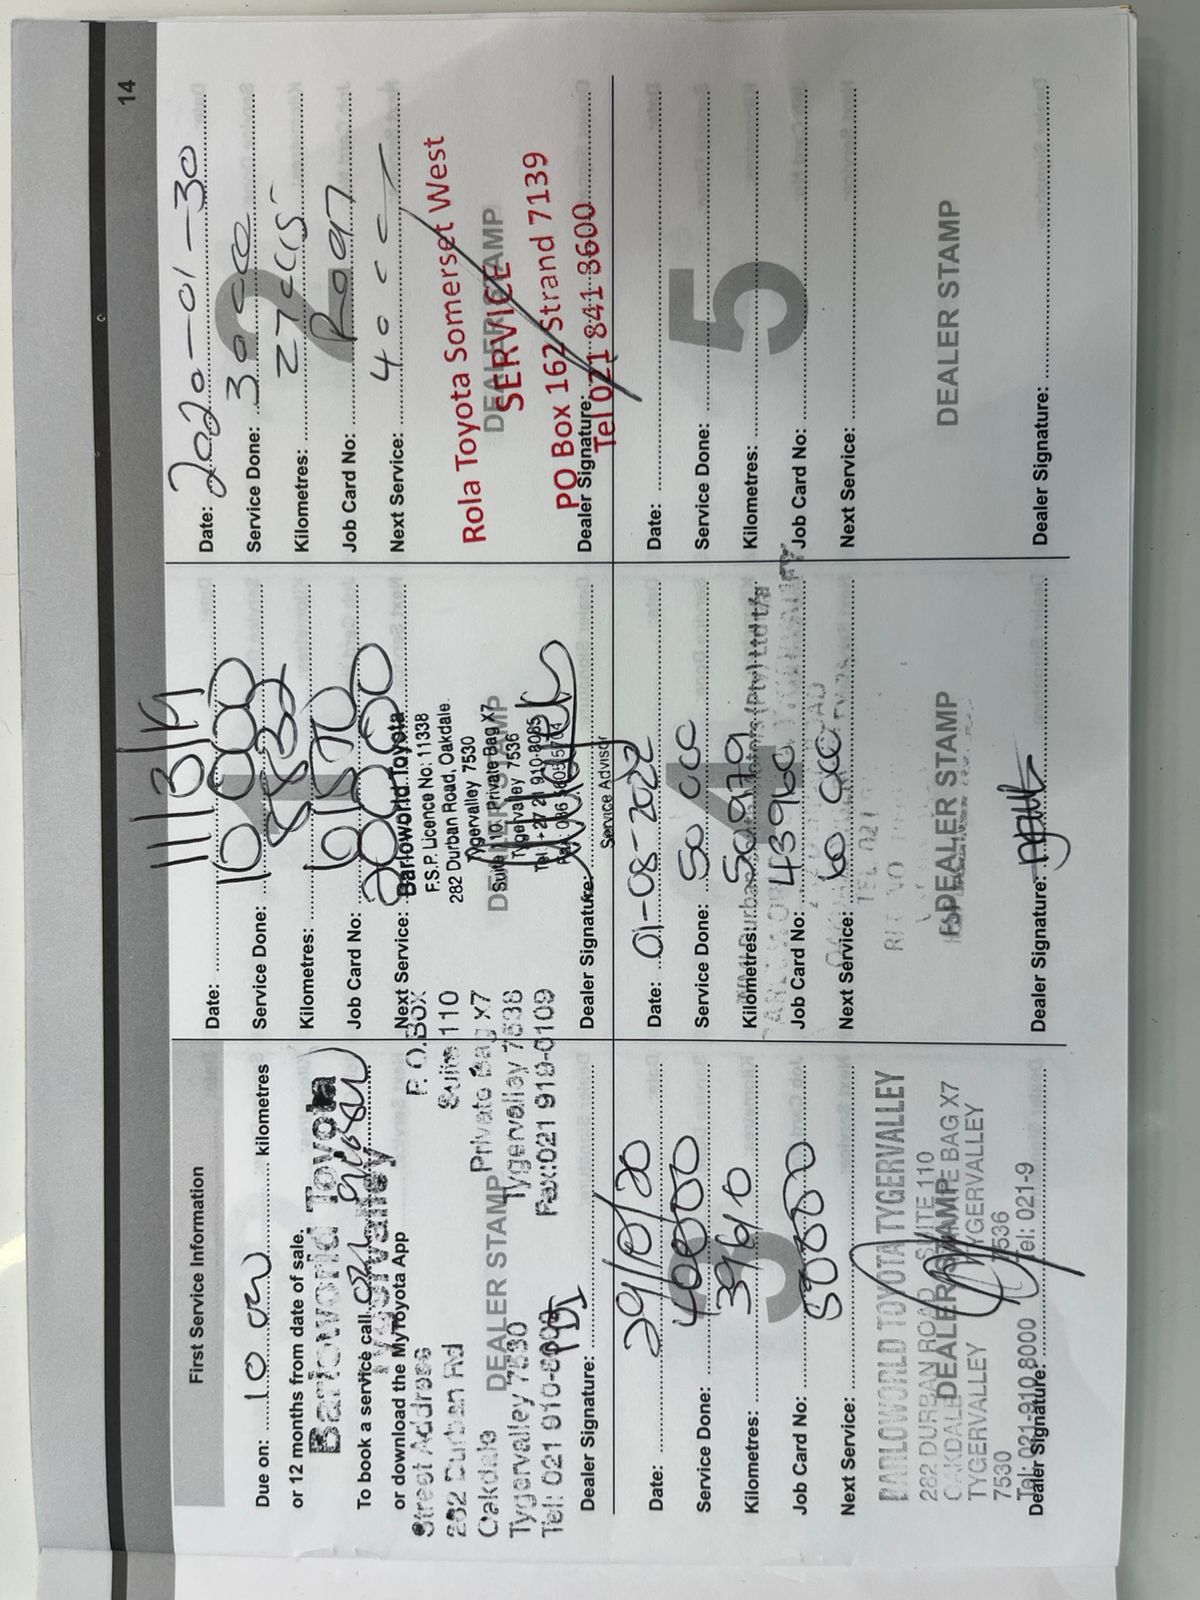 14
First Service Information
Due on: 10 000 kilometres
or 12 months from date of sale.
Barloworld Toyota
To book a service call 021 9108000
Tygervalley
or download the MyToyota App
Street Address P.O.BOX
282 Durban Rd Suite 110
Oakdale Private Bag X7
DEALER STAMP
Tygervalley 7530 Tygervalley 7536
Tel: 021 910-8000 Fax:021 919-0109
PDI
Dealer Signature:
1
Date: 11/3/19
Service Done: 10 000
Kilometres: 8832
Job Card No: 61570
Next Service: 20000
Barloworld Toyota
F.S.P. Licence No: 11338
282 Durban Road, Oakdale
Tygervalley 7530
DEALER STAMP
Suite 110, Private Bag X7
Tygervalley 7536
Tel: +27 21 910-8085
Dealer Signature:
Service Advisor
2
Date: 2020-01-30
Service Done: 30 000
Kilometres:
Job Card No:
Next Service: 40 000
Rola Toyota Somerset West
DEALER STAMP
SERVICE
PO Box 162 Strand 7139
Tel 021 841 3600
Dealer Signature:
3
Date: 29/10/20
Service Done: 40000
Kilometres: 39610
Job Card No:
50000
Next Service:
BARLOWORLD TOYOTA TYGERVALLEY
282 DURBAN ROAD SUITE 110
OAKDALE PRIVATE BAG X7
DEALER STAMP
TYGERVALLEY TYGERVALLEY
7530 7536
Tel: 021-910 8000 Tel: 021-9
Dealer Signature:
4
Date: 01-08-2022
Service Done: 50 000
Kilometres: 50979
Job Card No: 43960
Next Service: 60 000
TEL 021
DEALER STAMP
Dealer Signature:
5
Date:
Service Done:
Kilometres:
Job Card No:
Next Service:
DEALER STAMP
Dealer Signature: